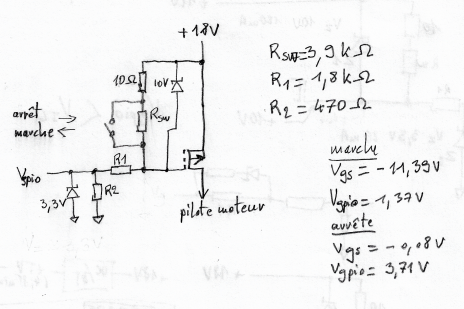 +18V
10Ω
10V
RSW
arrêt
marche
R1
Vgpio
3,3V
R2
pilote moteur
RSW=3,9 kΩ
R1 = 1,8 kΩ
R2 = 470 Ω
marche
Vgs = -11,39V
Vgpio = 1,37V
arrête
Vgs = -0,08V
Vgpio = 3,71V